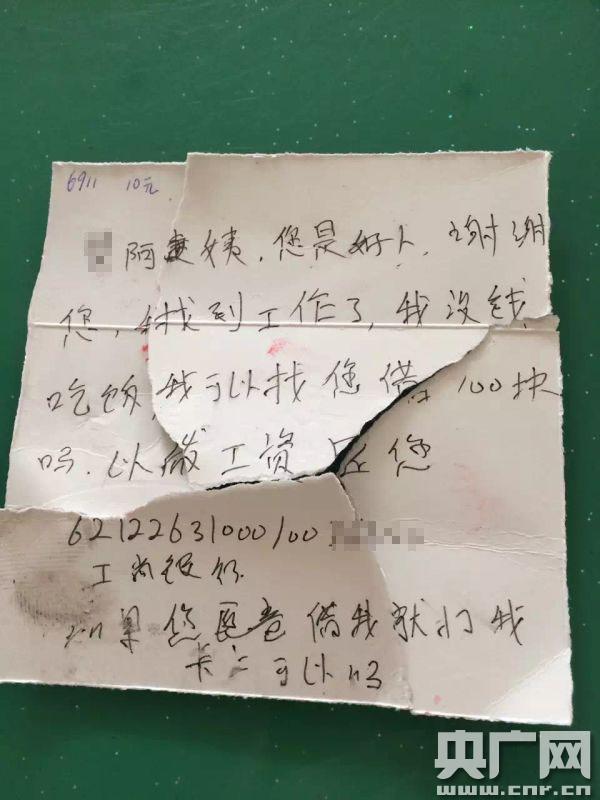 6911 10元
阿姨,您是好人,谢谢
您,我找到工作了,我没钱
吃饭我可以找您借100块
吗.以工资还您
62122631000100
工商银行
如果您愿意借我就打我
卡上可以吗
央广网
www.cnr.cn